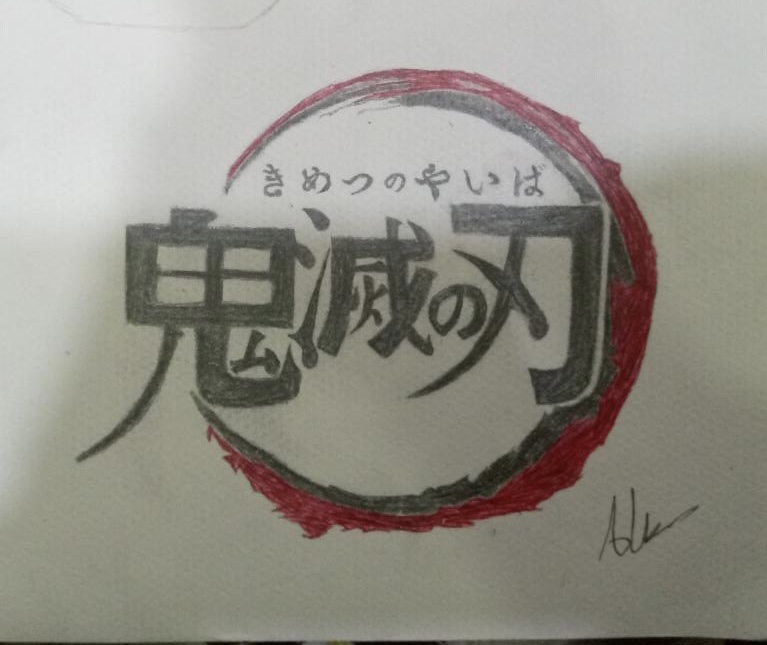 きめつのやいば
鬼滅の刃